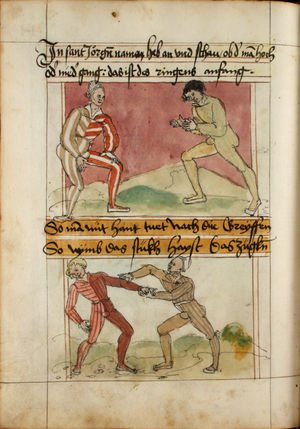 In sant Jörgn namen heb an vnd schau / ob d man hoch
od nider gang · das ist des ringens anfang ·
So man mit hant tuet nach die Greyffen
So nymb das stuckh hayst Das Zucken